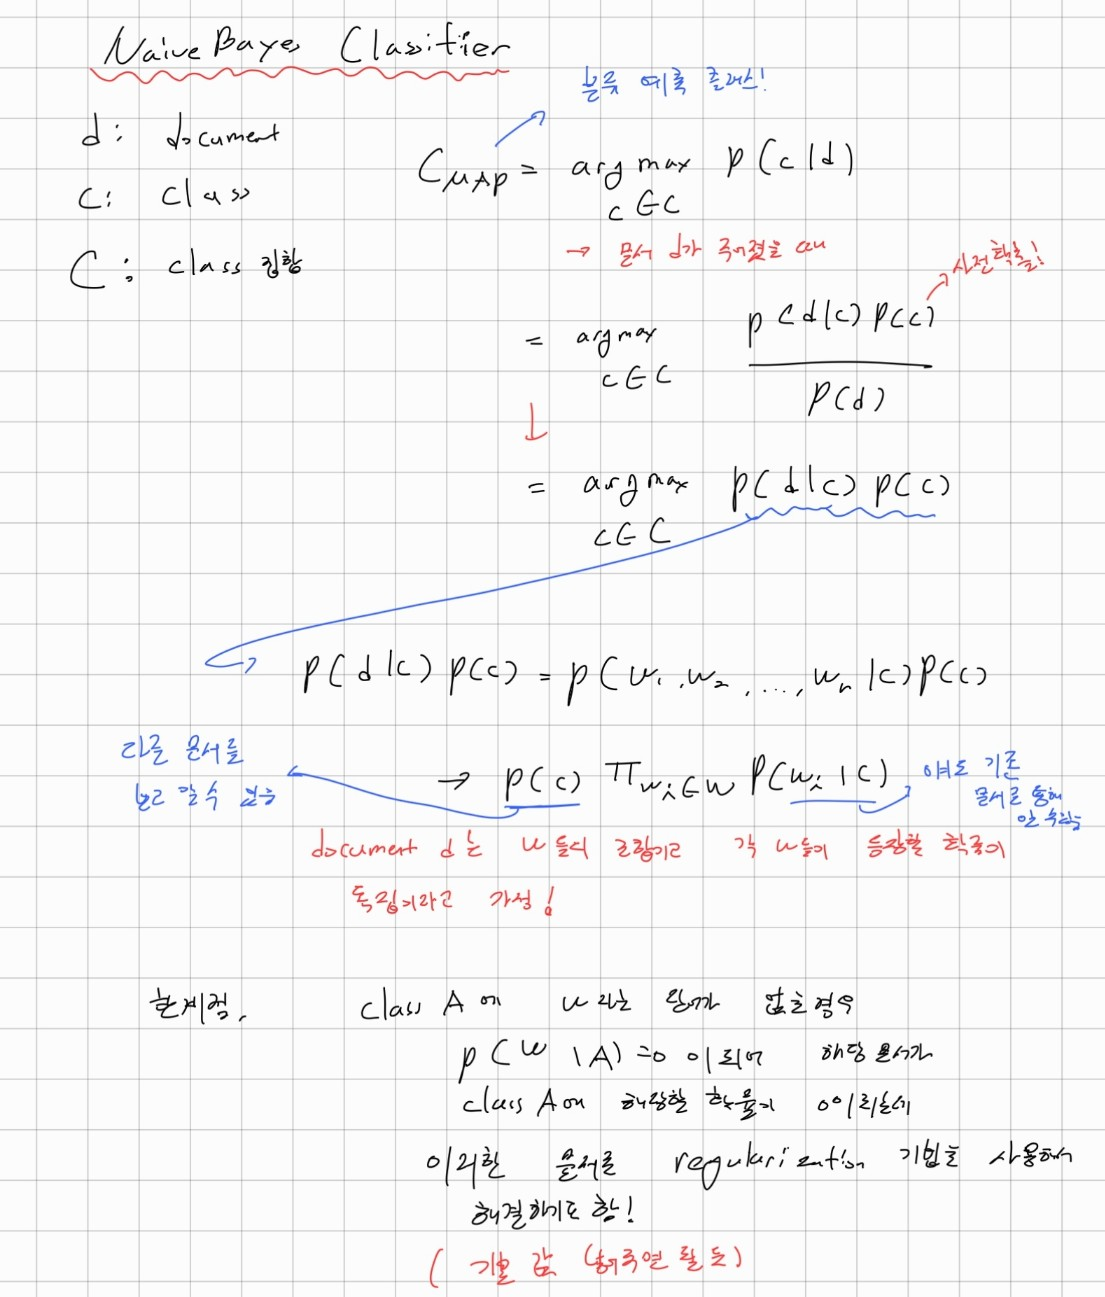 Naive Bayes Classifier
d: document
c: class
C: class 집합
분류 예측 클래스!
C_MAP = arg max P(c|d)
c∈C
→ 문서 d가 주어졌을 때
사전확률!
= arg max P(d|c) P(c)
c∈C P(d)
↓
= arg max P(d|c) P(c)
c∈C
P(d|c) P(c) = P(w₁, w₂, ..., wₙ|c) P(c)
다른 문서를
보고 알 수 있음
→ P(c) Π_{wᵢ∈W} P(wᵢ|c)
얘도 기존
문서를 통해
알 수 있음
document d는 w들의 조합이고 각 w들이 등장할 확률이
독립이라고 가정!
한계점.
class A에 w라는 단어가 없을 경우
P(w|A)=0 이 되어 해당 문서가
class A에 해당할 확률이 0이 되는데
이러한 문제를 regularization 기법을 사용해서
해결하기도 함!
(기본 값 해주면 될 듯)